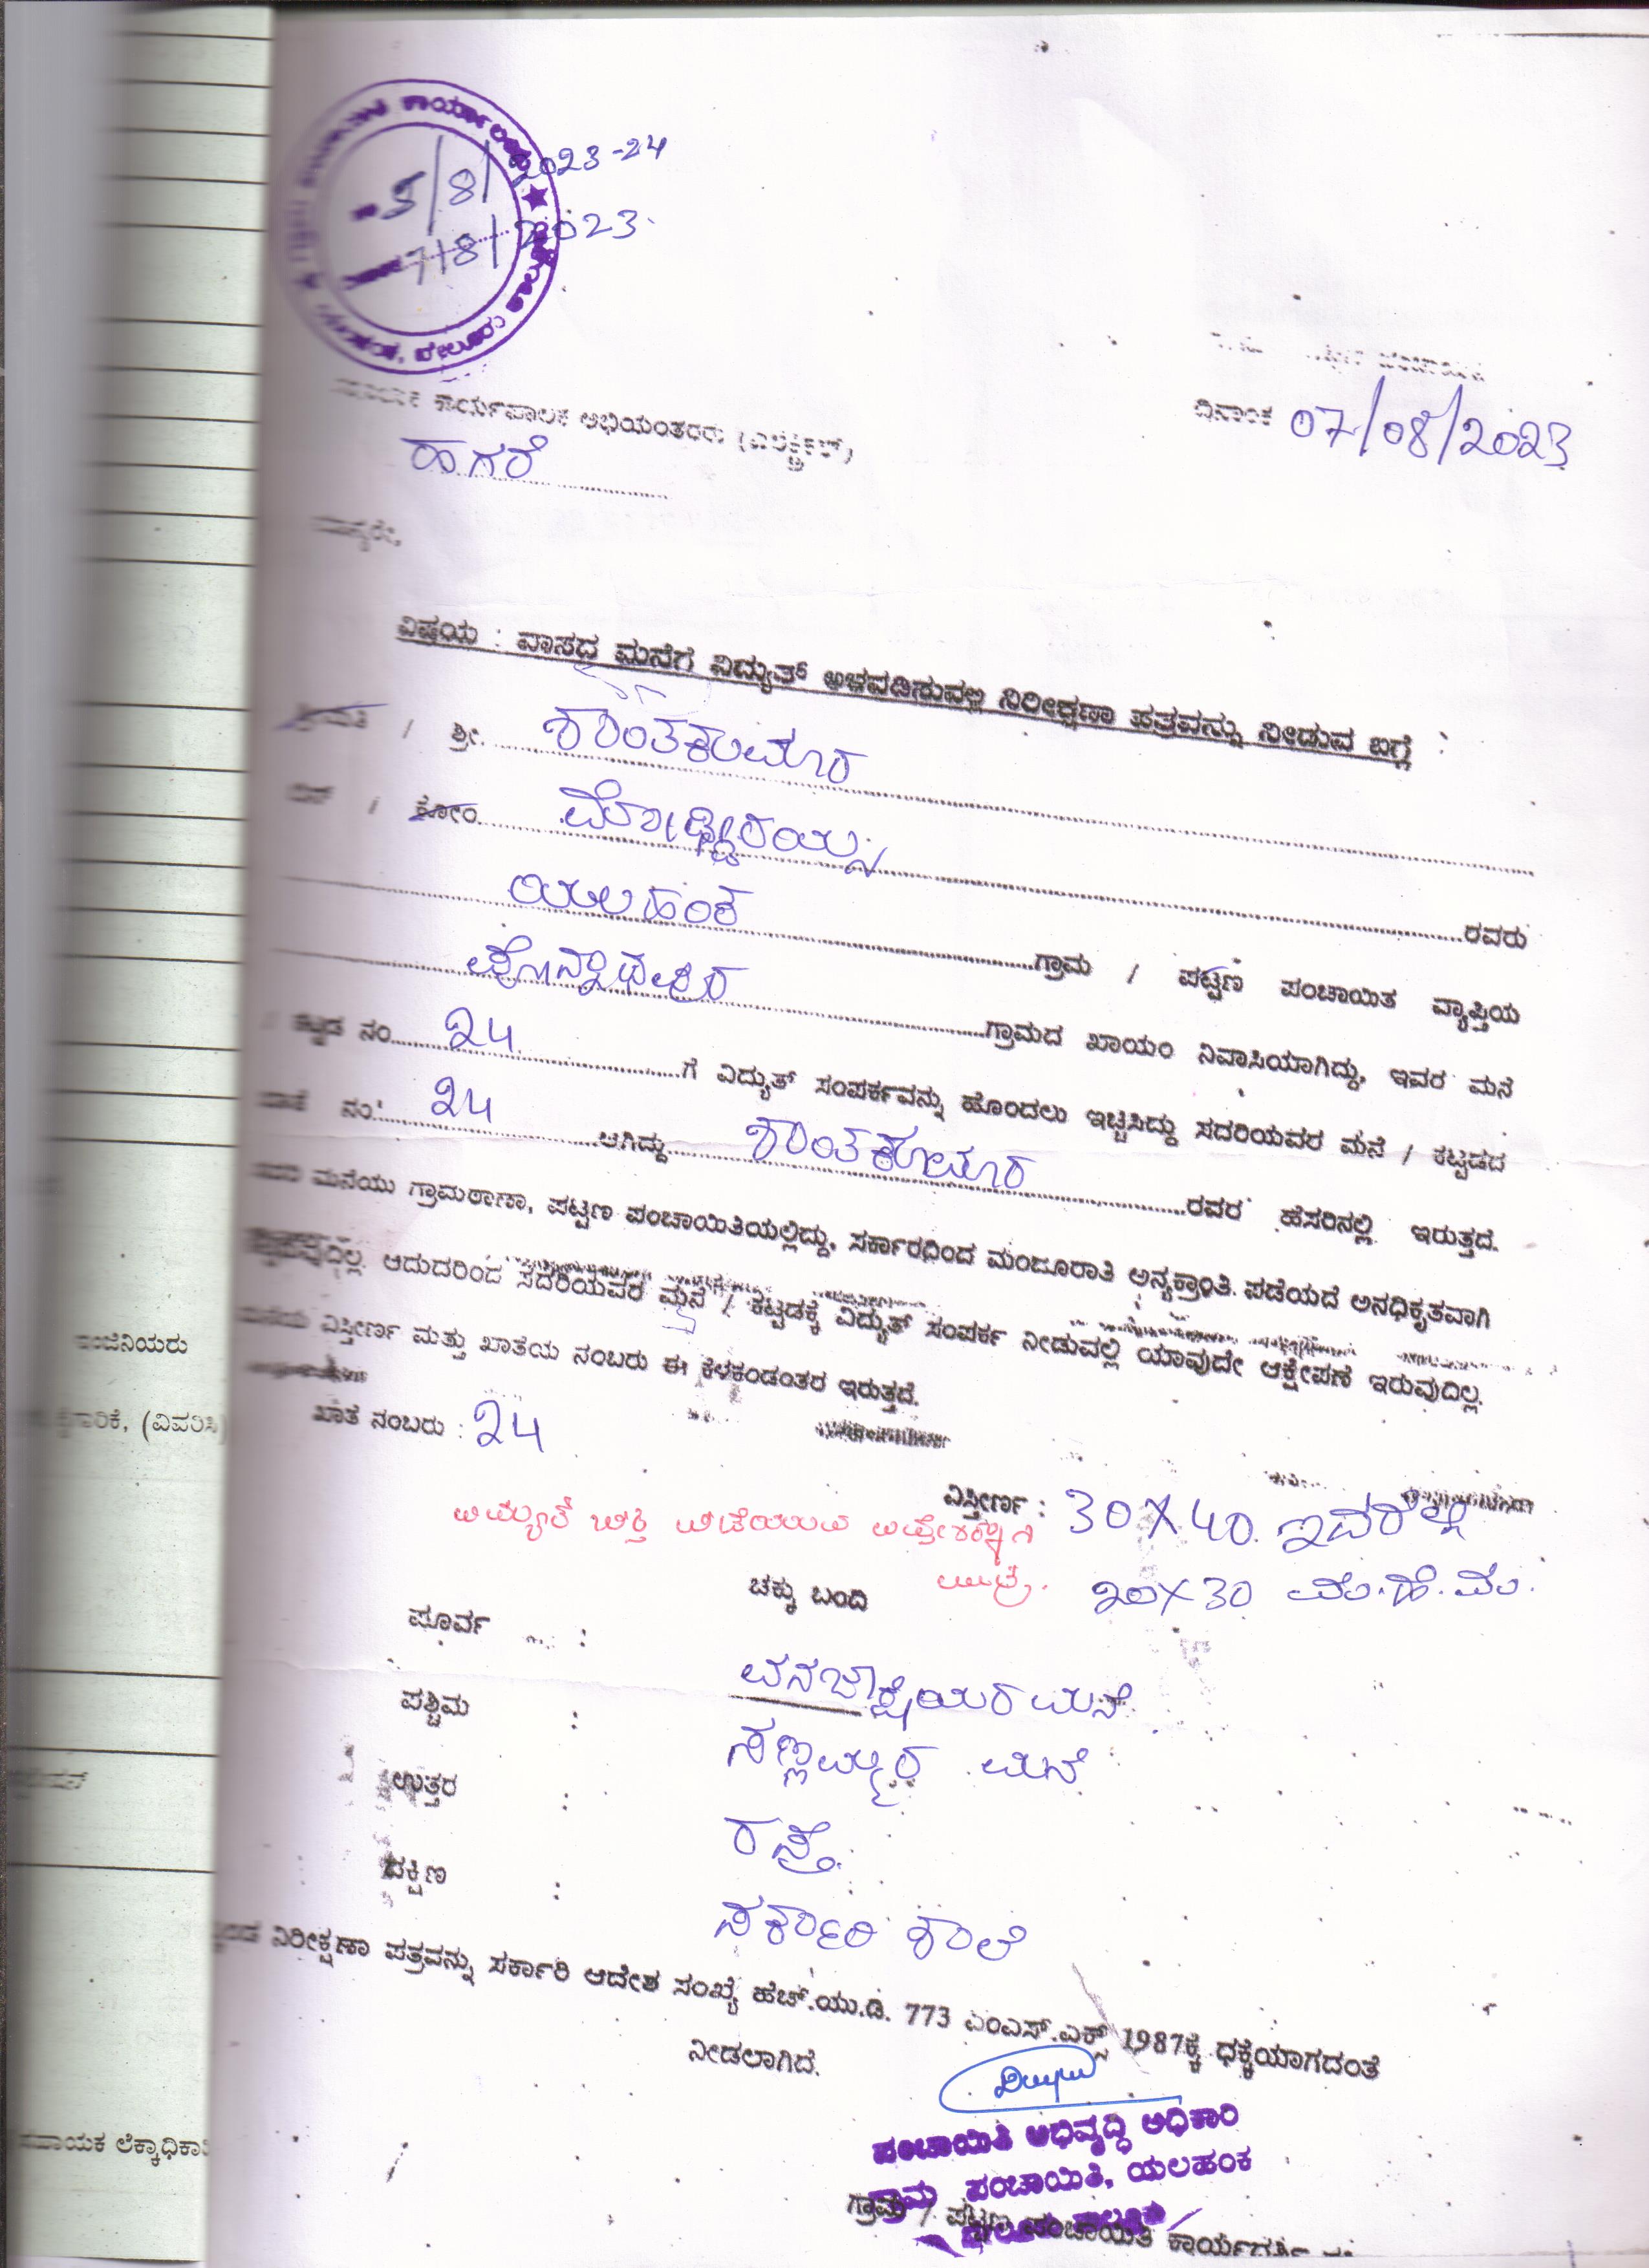 ಕಾರ್ಯಾಲಯ ★
5/8/2023-24
7/8/2023
ದಿನಾಂಕ 07/08/2023
ಕಾರ್ಯಪಾಲಕ ಅಭಿಯಂತರರು (ಎಲೆಕ್ಟ್ರಿಕಲ್)
ಹಗರೆ
ಮಾನ್ಯರೇ,
ವಿಷಯ : ವಾಸದ ಮನೆಗೆ ವಿದ್ಯುತ್ ಅಳವಡಿಸುವಲ್ಲಿ ನಿರೀಕ್ಷಣಾ ಪತ್ರವನ್ನು ನೀಡುವ ಬಗ್ಗೆ :
ಶ್ರೀಮತಿ / ಶ್ರೀ. ಶಾಂತಕುಮಾರ
ಬಿನ್ / ಕೋಂ ರವರು
ಯಲಹಂಕ ಗ್ರಾಮ / ಪಟ್ಟಣ ಪಂಚಾಯಿತ ವ್ಯಾಪ್ತಿಯ
ಗ್ರಾಮದ ಖಾಯಂ ನಿವಾಸಿಯಾಗಿದ್ದು, ಇವರ ಮನೆ
/ ಕಟ್ಟಡ ನಂ. 24 ಗೆ ವಿದ್ಯುತ್ ಸಂಪರ್ಕವನ್ನು ಹೊಂದಲು ಇಚ್ಚಿಸಿದ್ದು ಸದರಿಯವರ ಮನೆ / ಕಟ್ಟಡದ
ಖಾತೆ ನಂ. 24 ಆಗಿದ್ದು ಶಾಂತಕುಮಾರ ರವರ ಹೆಸರಿನಲ್ಲಿ ಇರುತ್ತದೆ.
ಸದರಿ ಮನೆಯು ಗ್ರಾಮಠಾಣಾ, ಪಟ್ಟಣ ಪಂಚಾಯಿತಿಯಲ್ಲಿದ್ದು, ಸರ್ಕಾರದಿಂದ ಮಂಜೂರಾತಿ ಅನ್ಯಕ್ರಾಂತಿ ಪಡೆಯದೆ ಅನಧಿಕೃತವಾಗಿ
ಆದುದರಿಂದ ಸದರಿಯವರ ಮನೆ / ಕಟ್ಟಡಕ್ಕೆ ವಿದ್ಯುತ್ ಸಂಪರ್ಕ ನೀಡುವಲ್ಲಿ ಯಾವುದೇ ಆಕ್ಷೇಪಣೆ ಇರುವುದಿಲ್ಲ.
ಮನೆಯ ವಿಸ್ತೀರ್ಣ ಮತ್ತು ಖಾತೆಯ ನಂಬರು ಈ ಕೆಳಕಂಡಂತರ ಇರುತ್ತದೆ.
ಇಂಜಿನಿಯರು
(ವಿವರಿಸಿ)
ಖಾತೆ ನಂಬರು : 24
ವಿಸ್ತೀರ್ಣ : 30X40 ಇವರಲ್ಲಿ
20X30 ಮಂ.ಹೆ.ಮಂ.
ಚಕ್ಕು ಬಂದಿ
ಪೂರ್ವ : ವನಜಾಕ್ಷಿಯರ ಮನೆ
ಪಶ್ಚಿಮ : ಸಣ್ಣಮ್ಮರ ಮನೆ
ಉತ್ತರ : ರಸ್ತೆ.
ದಕ್ಷಿಣ : ಸರ್ಕಾರಿ ಶಾಲೆ
ನಿರೀಕ್ಷಣಾ ಪತ್ರವನ್ನು ಸರ್ಕಾರಿ ಆದೇಶ ಸಂಖ್ಯೆ ಹೆಚ್.ಯು.ಡಿ. 773 ಎಂಎಸ್.ಎಕ್ಸ್ 1987ಕ್ಕೆ ಧಕ್ಕೆಯಾಗದಂತೆ
ನೀಡಲಾಗಿದೆ.
ಪಂಚಾಯಿತಿ ಅಭಿವೃದ್ಧಿ ಅಧಿಕಾರಿ
ಗ್ರಾಮ ಪಂಚಾಯಿತಿ, ಯಲಹಂಕ
ಗ್ರಾಮ / ಪಟ್ಟಣ ಪಂಚಾಯಿತಿ
ಸಹಾಯಕ ಲೆಕ್ಕಾಧಿಕಾರಿ